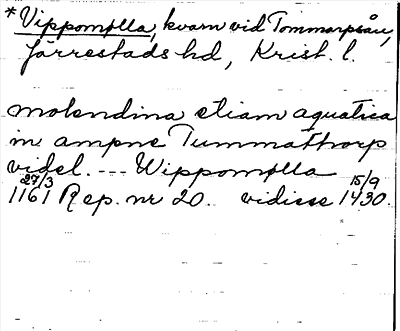 *Vippomølla, kvarn vid Tommarpsån,
Järrestads hd, Krist. l.
molendina etiam aquatica
in ampne Tummathorp
videl. --- Wippomølla
27/3 15/9
1161 Rep. nr 20. vidisse 1430.